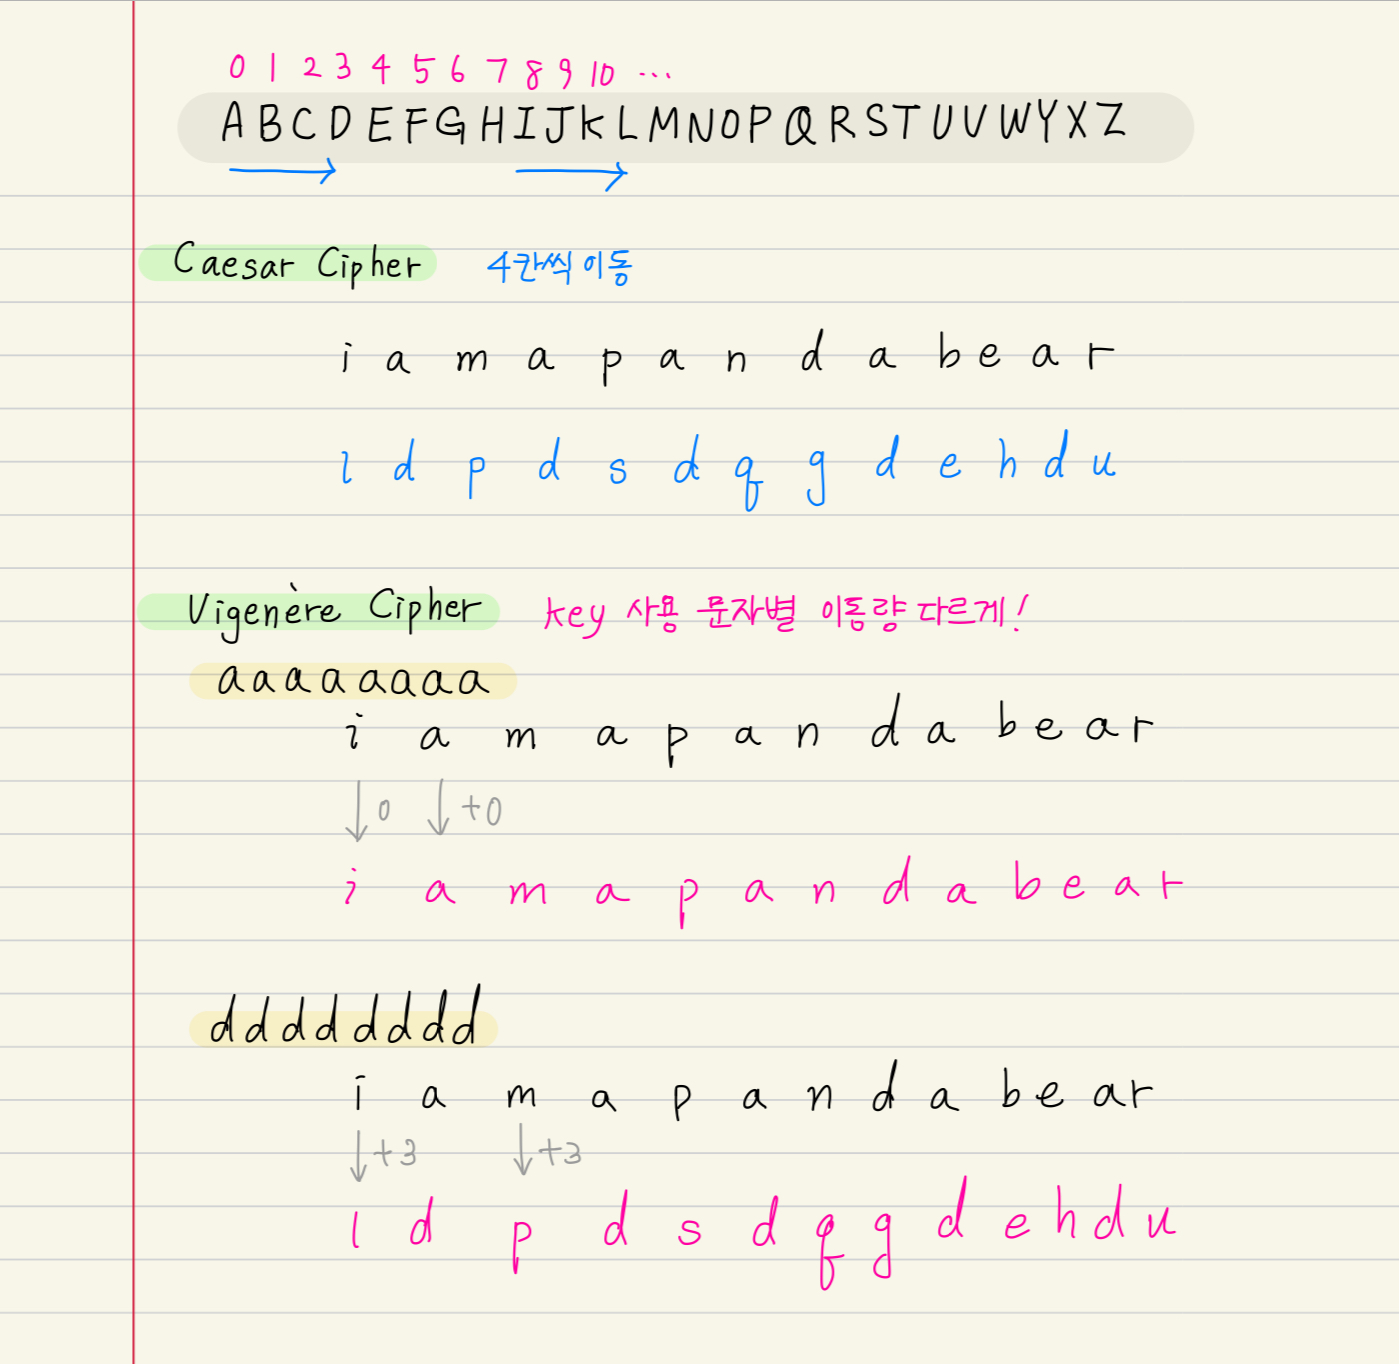 0 1 2 3 4 5 6 7 8 9 10 ...
A B C D E F G H I J K L M N O P Q R S T U V W Y X Z
Caesar Cipher 4칸씩 이동
i a m a p a n d a b e a r
l d p d s d q g d e h d u
Vigenère Cipher key 사용 문자별 이동량 다르게!
a a a a a a a a
i a m a p a n d a b e a r
0 +0
i a m a p a n d a b e a r
d d d d d d d d
i a m a p a n d a b e a r
+3 +3
l d p d s d q g d e h d u